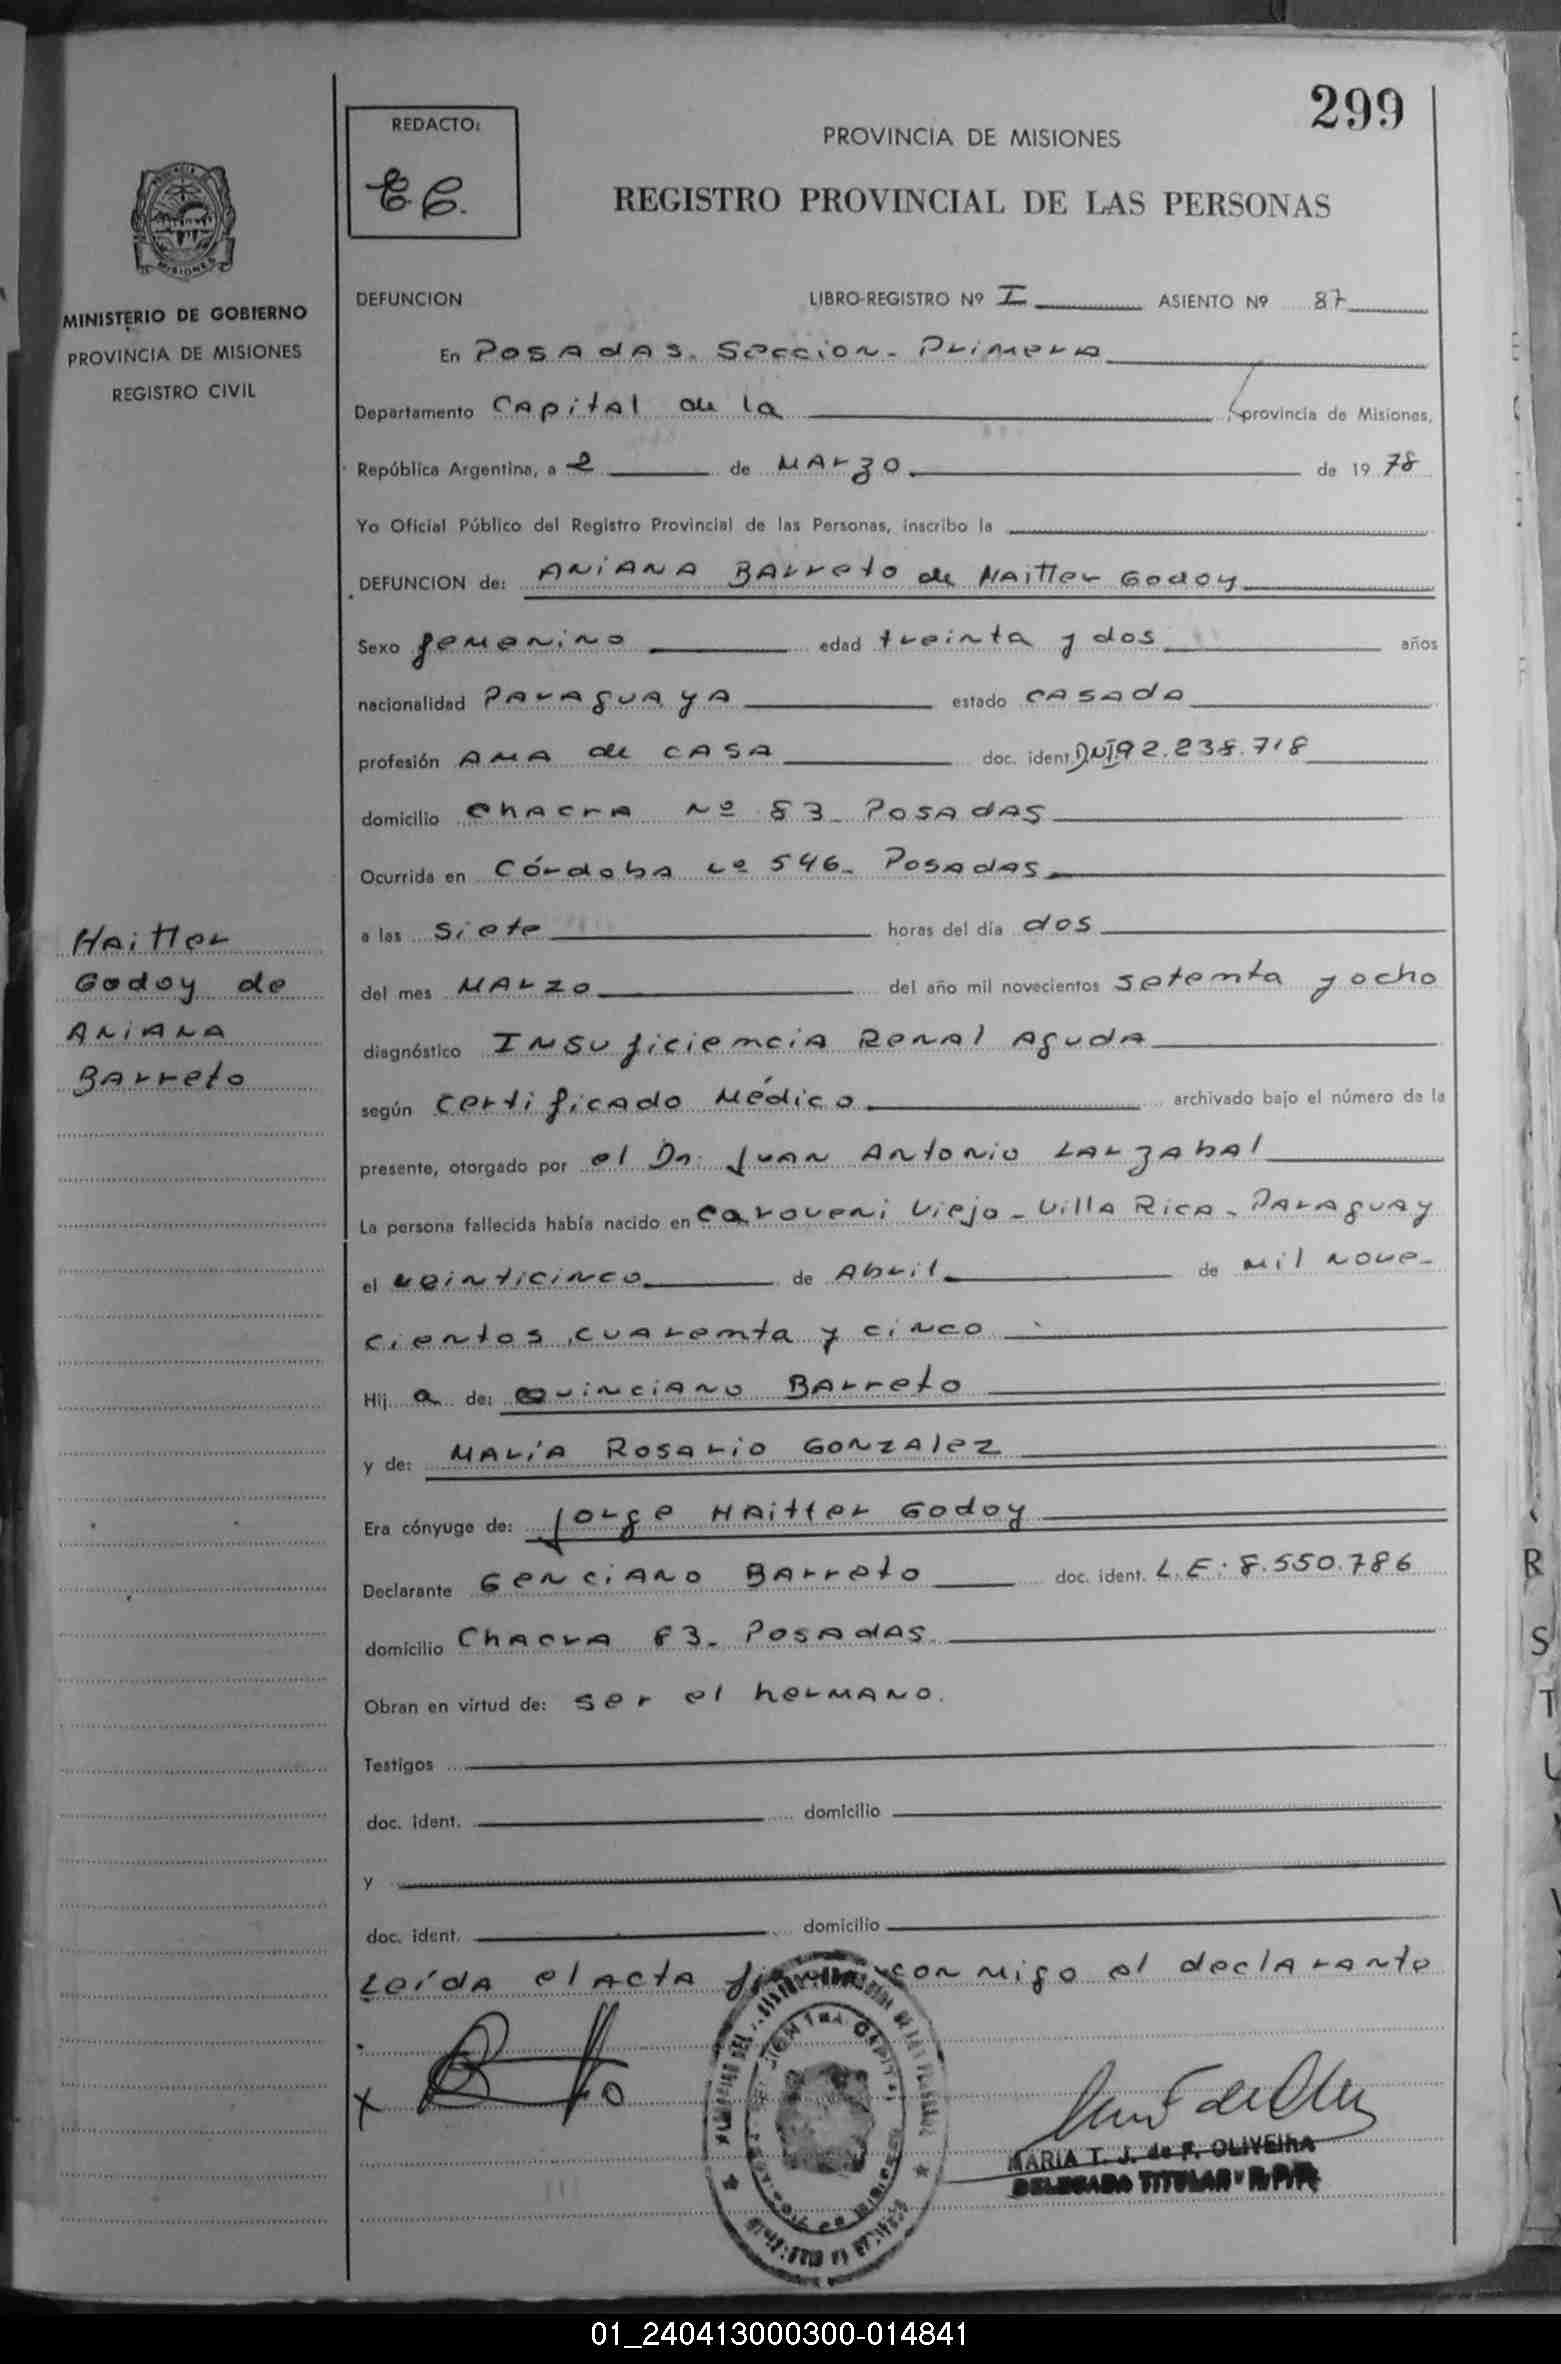 299
REDACTO:
E.C.
PROVINCIA DE MISIONES
REGISTRO PROVINCIAL DE LAS PERSONAS
MISIONES
MINISTERIO DE GOBIERNO
PROVINCIA DE MISIONES
REGISTRO CIVIL
DEFUNCION LIBRO-REGISTRO Nº I ASIENTO Nº 87
En Posadas. Seccion. Primera
Departamento Capital de la provincia de Misiones,
República Argentina, a 2 de Marzo de 1978
Yo Oficial Público del Registro Provincial de las Personas, inscribo la
DEFUNCION de: Aniana Barreto de Haitter Godoy
Sexo femenino edad treinta y dos años
nacionalidad Paraguaya estado casada
profesión Ama de casa doc. ident. DNI 92.238.718
domicilio Chacra Nº 83. Posadas
Ocurrida en Córdoba Nº 546. Posadas
a las siete horas del día dos
del mes Marzo del año mil novecientos setemta y ocho
diagnóstico Imsuficiemcia Renal Aguda
según certificado Médico archivado bajo el número de la
presente, otorgado por el Dr. Juan Antonio Larzabal
La persona fallecida había nacido en Caroveni Viejo - Villa Rica - Paraguay
el veinticinco de Abril de mil nove-
cientos cuaremta y cinco
Hij a de: Quinciano Barreto
y de: María Rosario Gonzalez
Era cónyuge de: Jorge Haitter Godoy
Declarante Genciano Barreto doc. ident. L.E: 8.550.786
domicilio Chacra 83. Posadas.
Obran en virtud de: ser el hermano.
Testigos
doc. ident. domicilio
y
doc. ident. domicilio
Leída el acta firma conmigo el declarante
Haitter
Godoy de
Aniana
Barreto
x
MARIA T. J. de F. OLIVEIRA
DELEGADA TITULAR R.P.P.
R
S
T
01_240413000300-014841